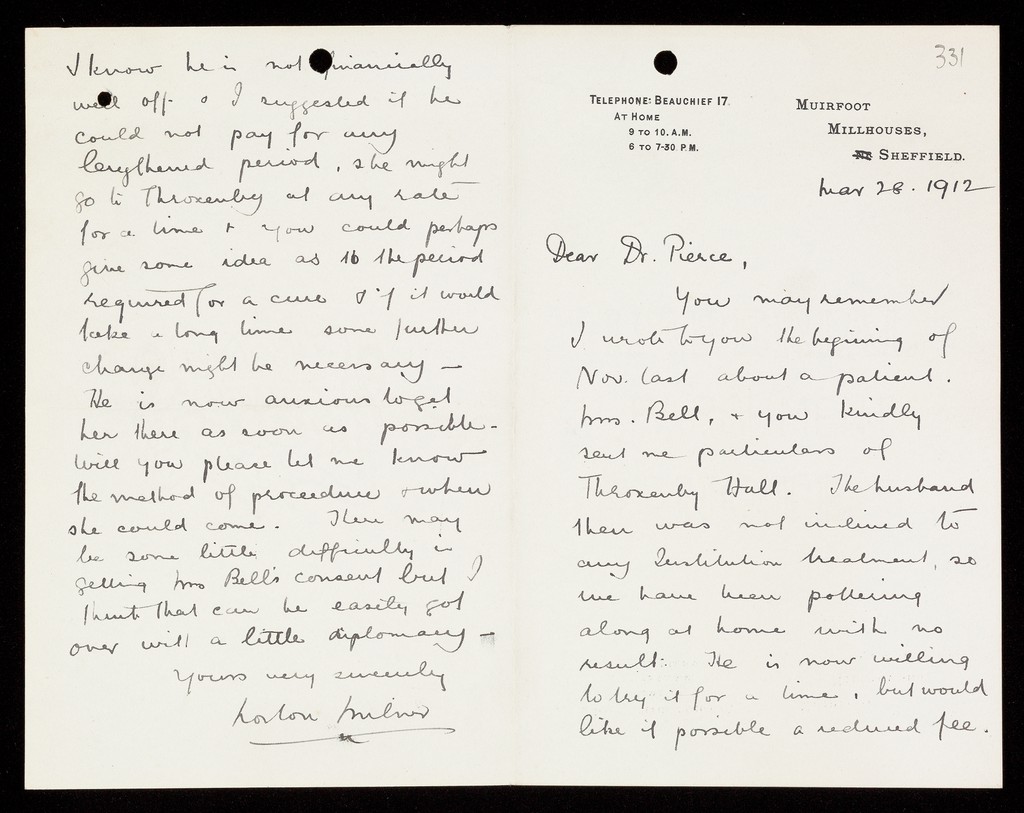 331
TELEPHONE: BEAUCHIEF 17.
AT HOME
9 TO 10. A.M.
6 TO 7-30 P.M.
MUIRFOOT
MILLHOUSES,
SHEFFIELD.
Mar 28. 1912
Dear Dr. Pierce,
You may remember
I wrote to you the begining of
Nov. last about a patient.
Mrs. Bell, + you kindly
sent me particulars of
Throxenby Hall. The husband
then was not inclined to
any Institution treatment, so
we have been pottering
along at home with no
result. He is now willing
to try it for a time, but would
like if possible a reduced fee.
I know he is not financially
well off & I suggested if he
could not pay for any
lengthened period, she might
go to Throxenby at any rate
for a time + you could perhaps
give some idea as to the period
required for a cure & if it would
take a long time some further
change might be necessary —
He is now anxious to get
her there as soon as possible -
Will you please let me know
the method of proceedure + when
she could come. There may
be some little difficulty in
getting Mrs Bell's consent but I
think that can be easily got
over with a little diplomacy —
Yours very sincerely
Norton Milner